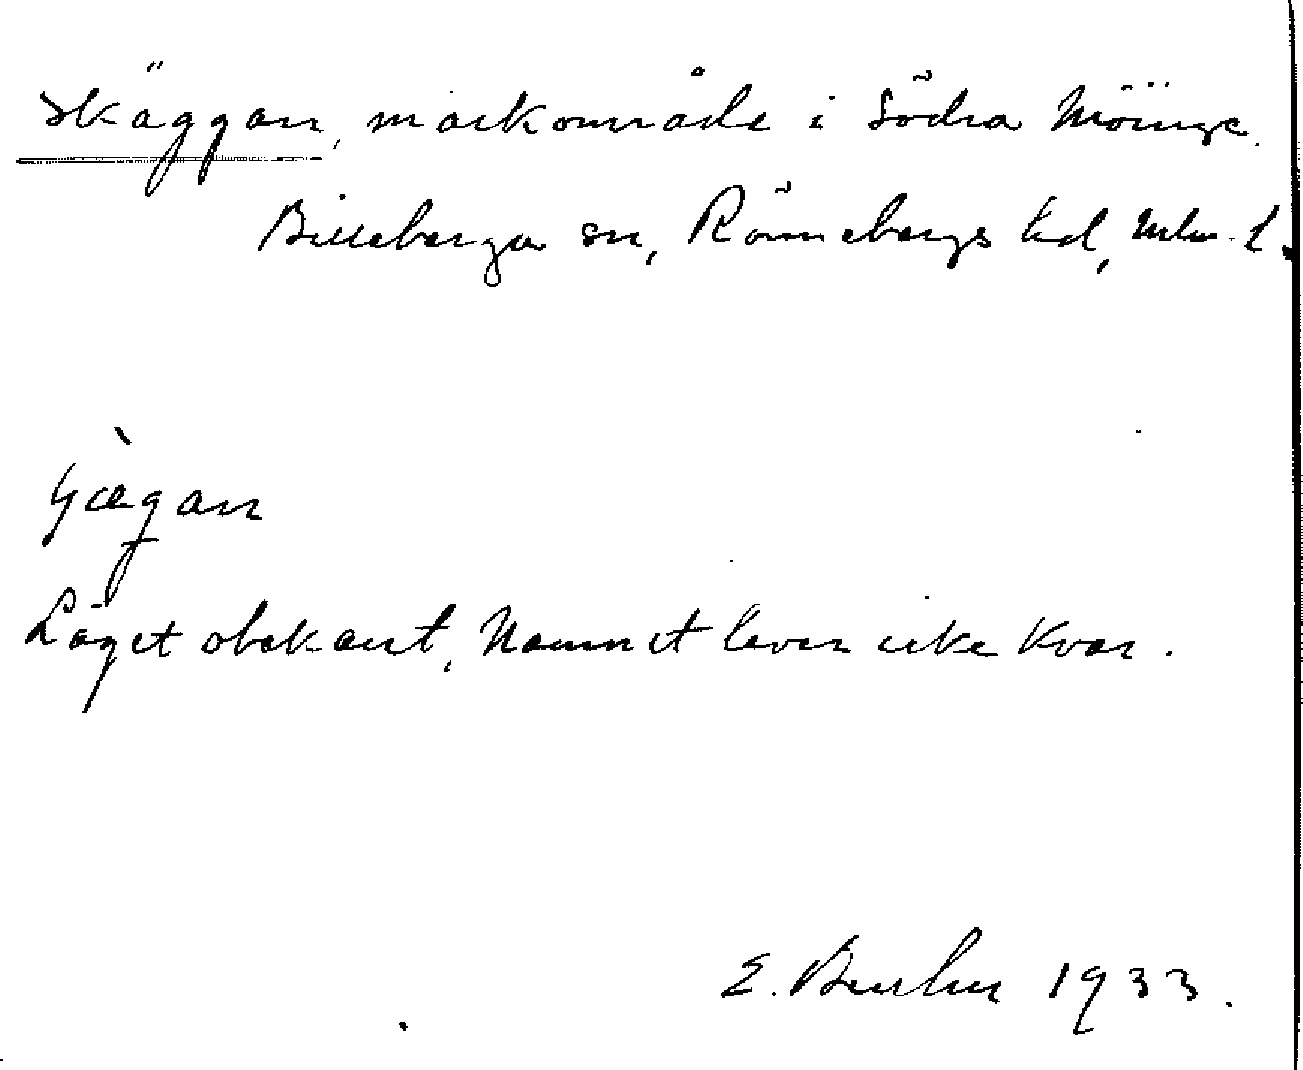 Skäggan, markområde i Södra Möinge.
Billeberga sn, Rönnebergs hd, Mlm. L.
Läget obekant, Namnet lever icke kvar.
E. 1933.